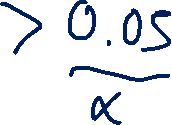 > 0.05
α